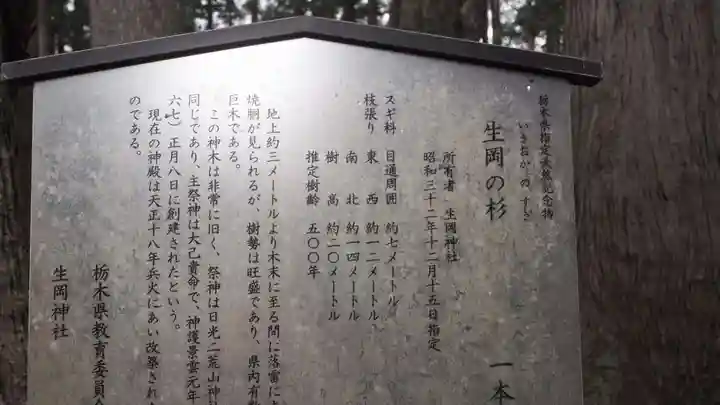 栃木県指定天然記念物
いきおか の すぎ
生岡の杉 一本
所有者 生岡神社
昭和三十二年十二月十五日指定
スギ科 目通周囲 約七メートル
枝張り 東西 約一二メートル
南北 約一四メートル
樹高 約二〇メートル
推定樹齢 五〇〇年
地上約三メートルより木末に至る間に落雷に
焼胴が見られるが、樹勢は旺盛であり、県内有
巨木である。
この神木は非常に旧く、祭神は日光二荒山神社
同じであり、主祭神は大己貴命で、神護景雲元年
六七）正月八日に創建されたという。
現在の神殿は天正十八年兵火にあい改築され
のである。
栃木県教育委員会
生岡神社